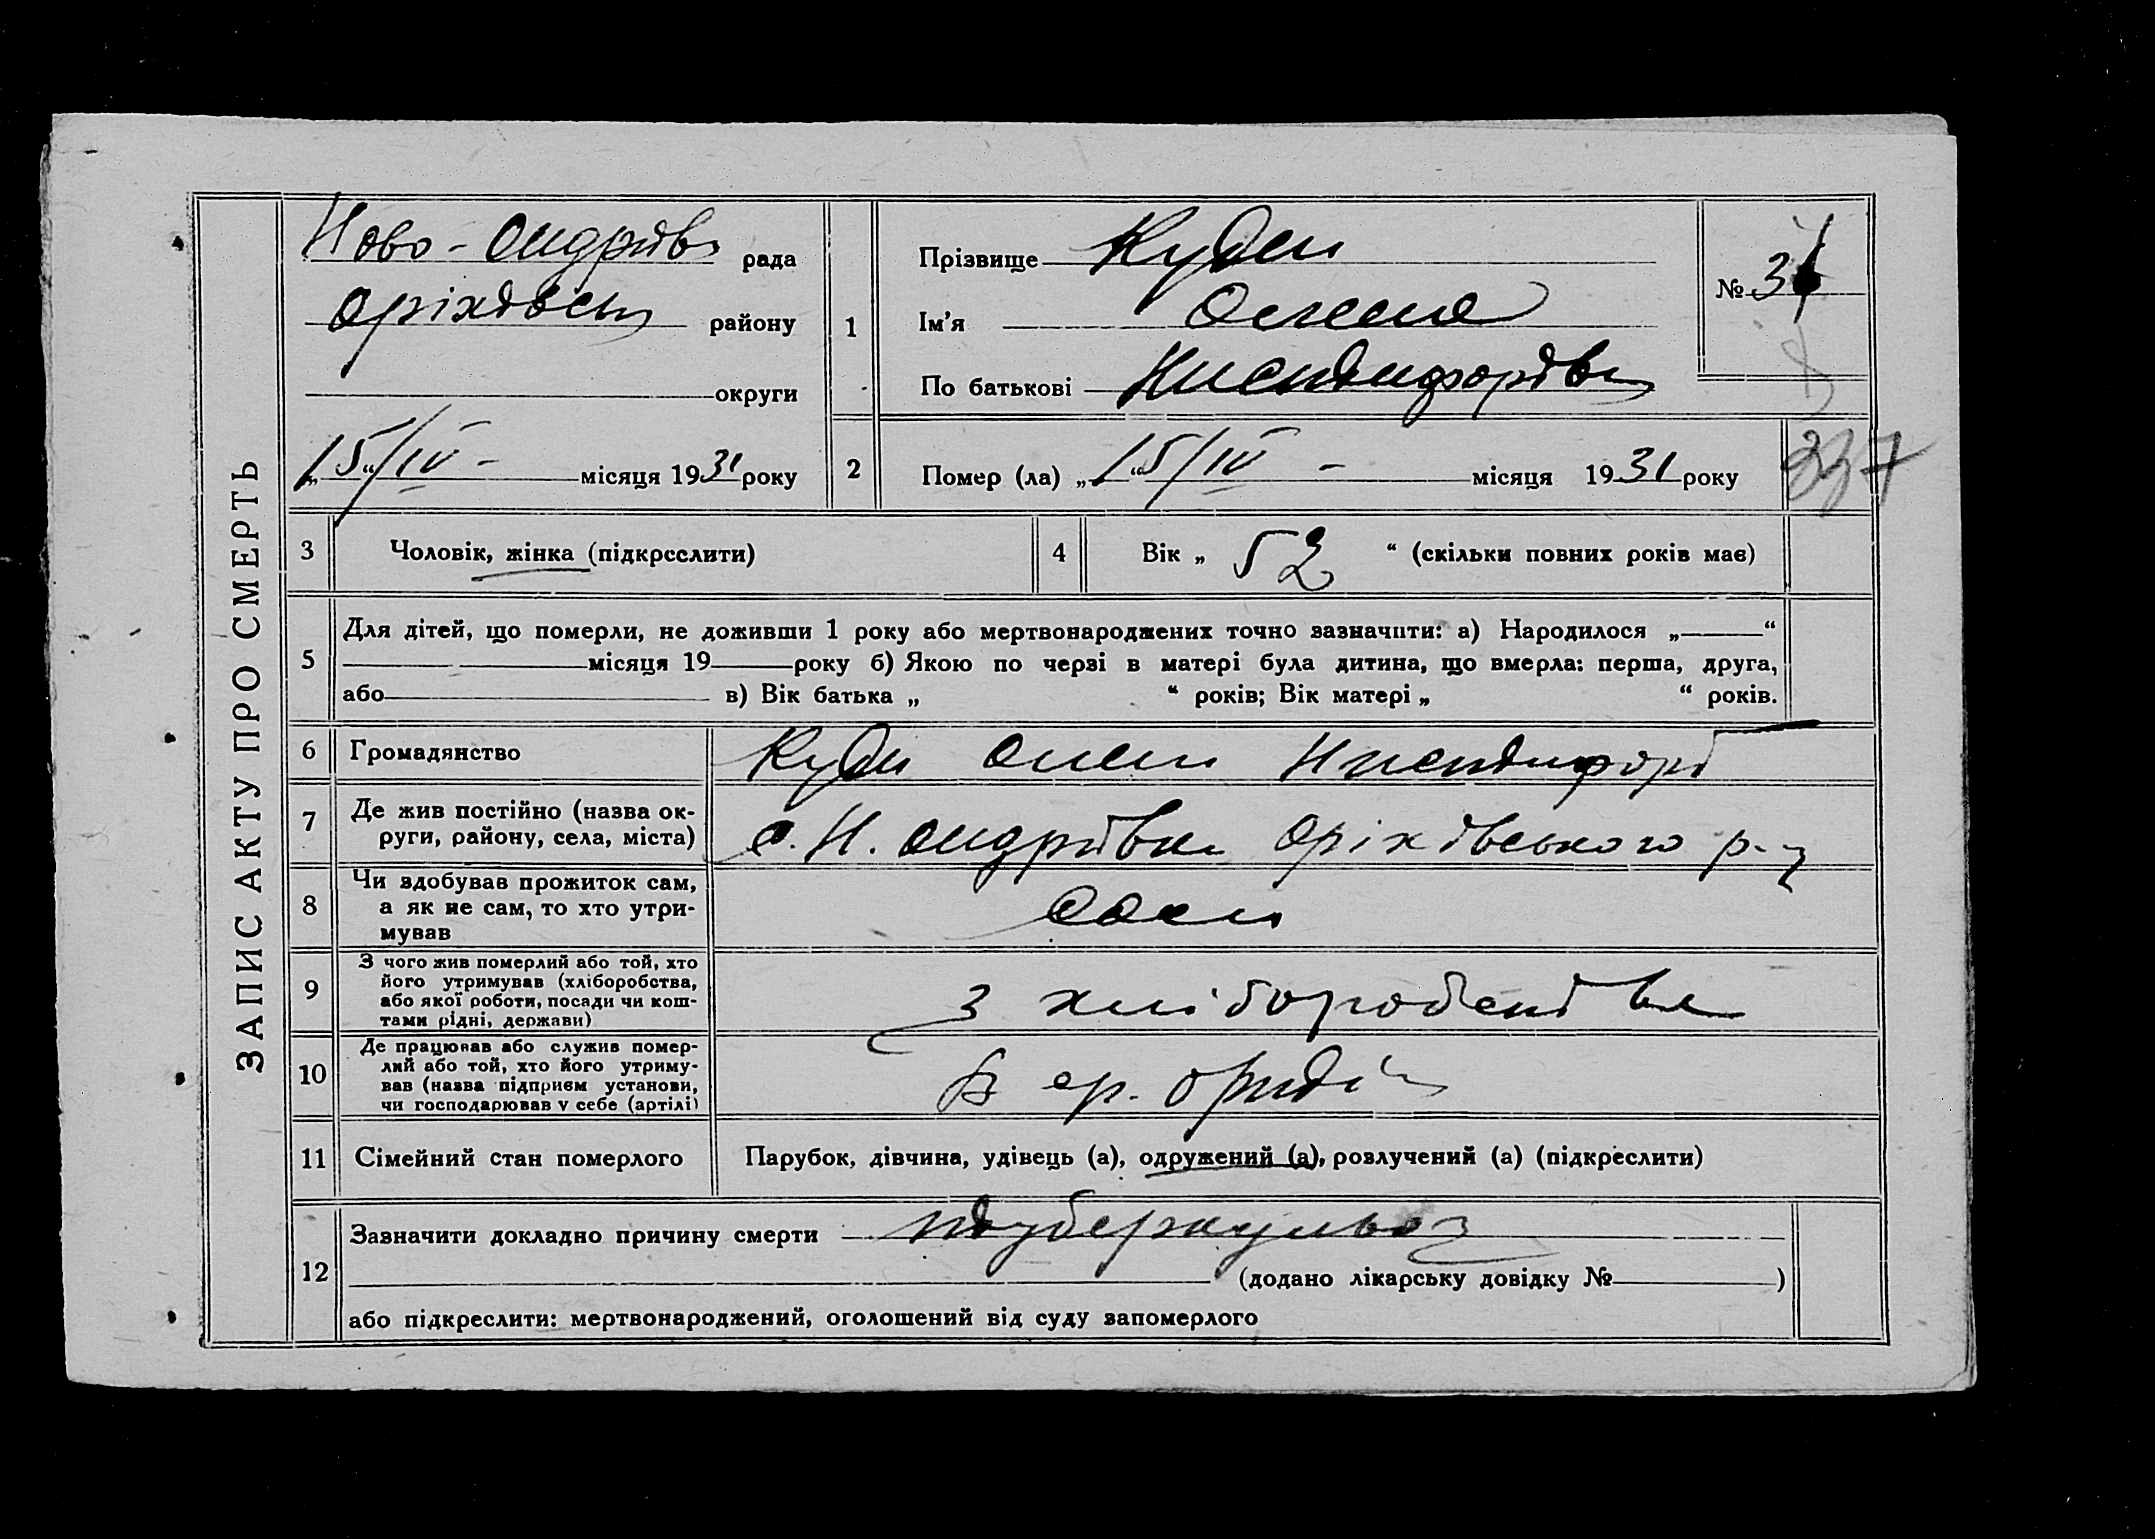 ЗАПИС АКТУ ПРО СМЕРТЬ
Ново-Андрівс рада
Оріхівськ району
округи
„15“/IV - місяця 1931 року
1
Прізвище
Ім'я Олена
По батькові
№ 3
2 Помер (ла) „15“/IV - місяця 1931 року
337
3 Чоловік, жінка (підкреслити)
4 Вік „ 52 “ (скільки повних років має)
5 Для дітей, що померли, не доживши 1 року або мертвонароджених точно зазначити: а) Народилося „ “
місяця 19 року б) Якою по черзі в матері була дитина, що вмерла: перша, друга,
або в) Вік батька „ “ років; Вік матері „ “ років.
6 Громадянство
7 Де жив постійно (назва ок-
руги, району, села, міста) с. Н. Андрівка Оріхівського р-н
8 Чи здобував прожиток сам,
а як не сам, то хто утри-
мував сама
9 З чого жив померлий або той, хто
його утримував (хліборобства,
або якої роботи, посади чи кош-
тами рідні, держави) з хліборобства
10 Де працював або служив помер-
лий або той, хто його утриму-
вав (назва підприєм установи,
чи господарював у себе (артілі) В
11 Сімейний стан померлого Парубок, дівчина, удівець (а), одружений (а), розлучений (а) (підкреслити)
12 Зазначити докладно причину смерти туберкульоз
(додано лікарську довідку № )
або підкреслити: мертвонароджений, оголошений від суду запомерлого